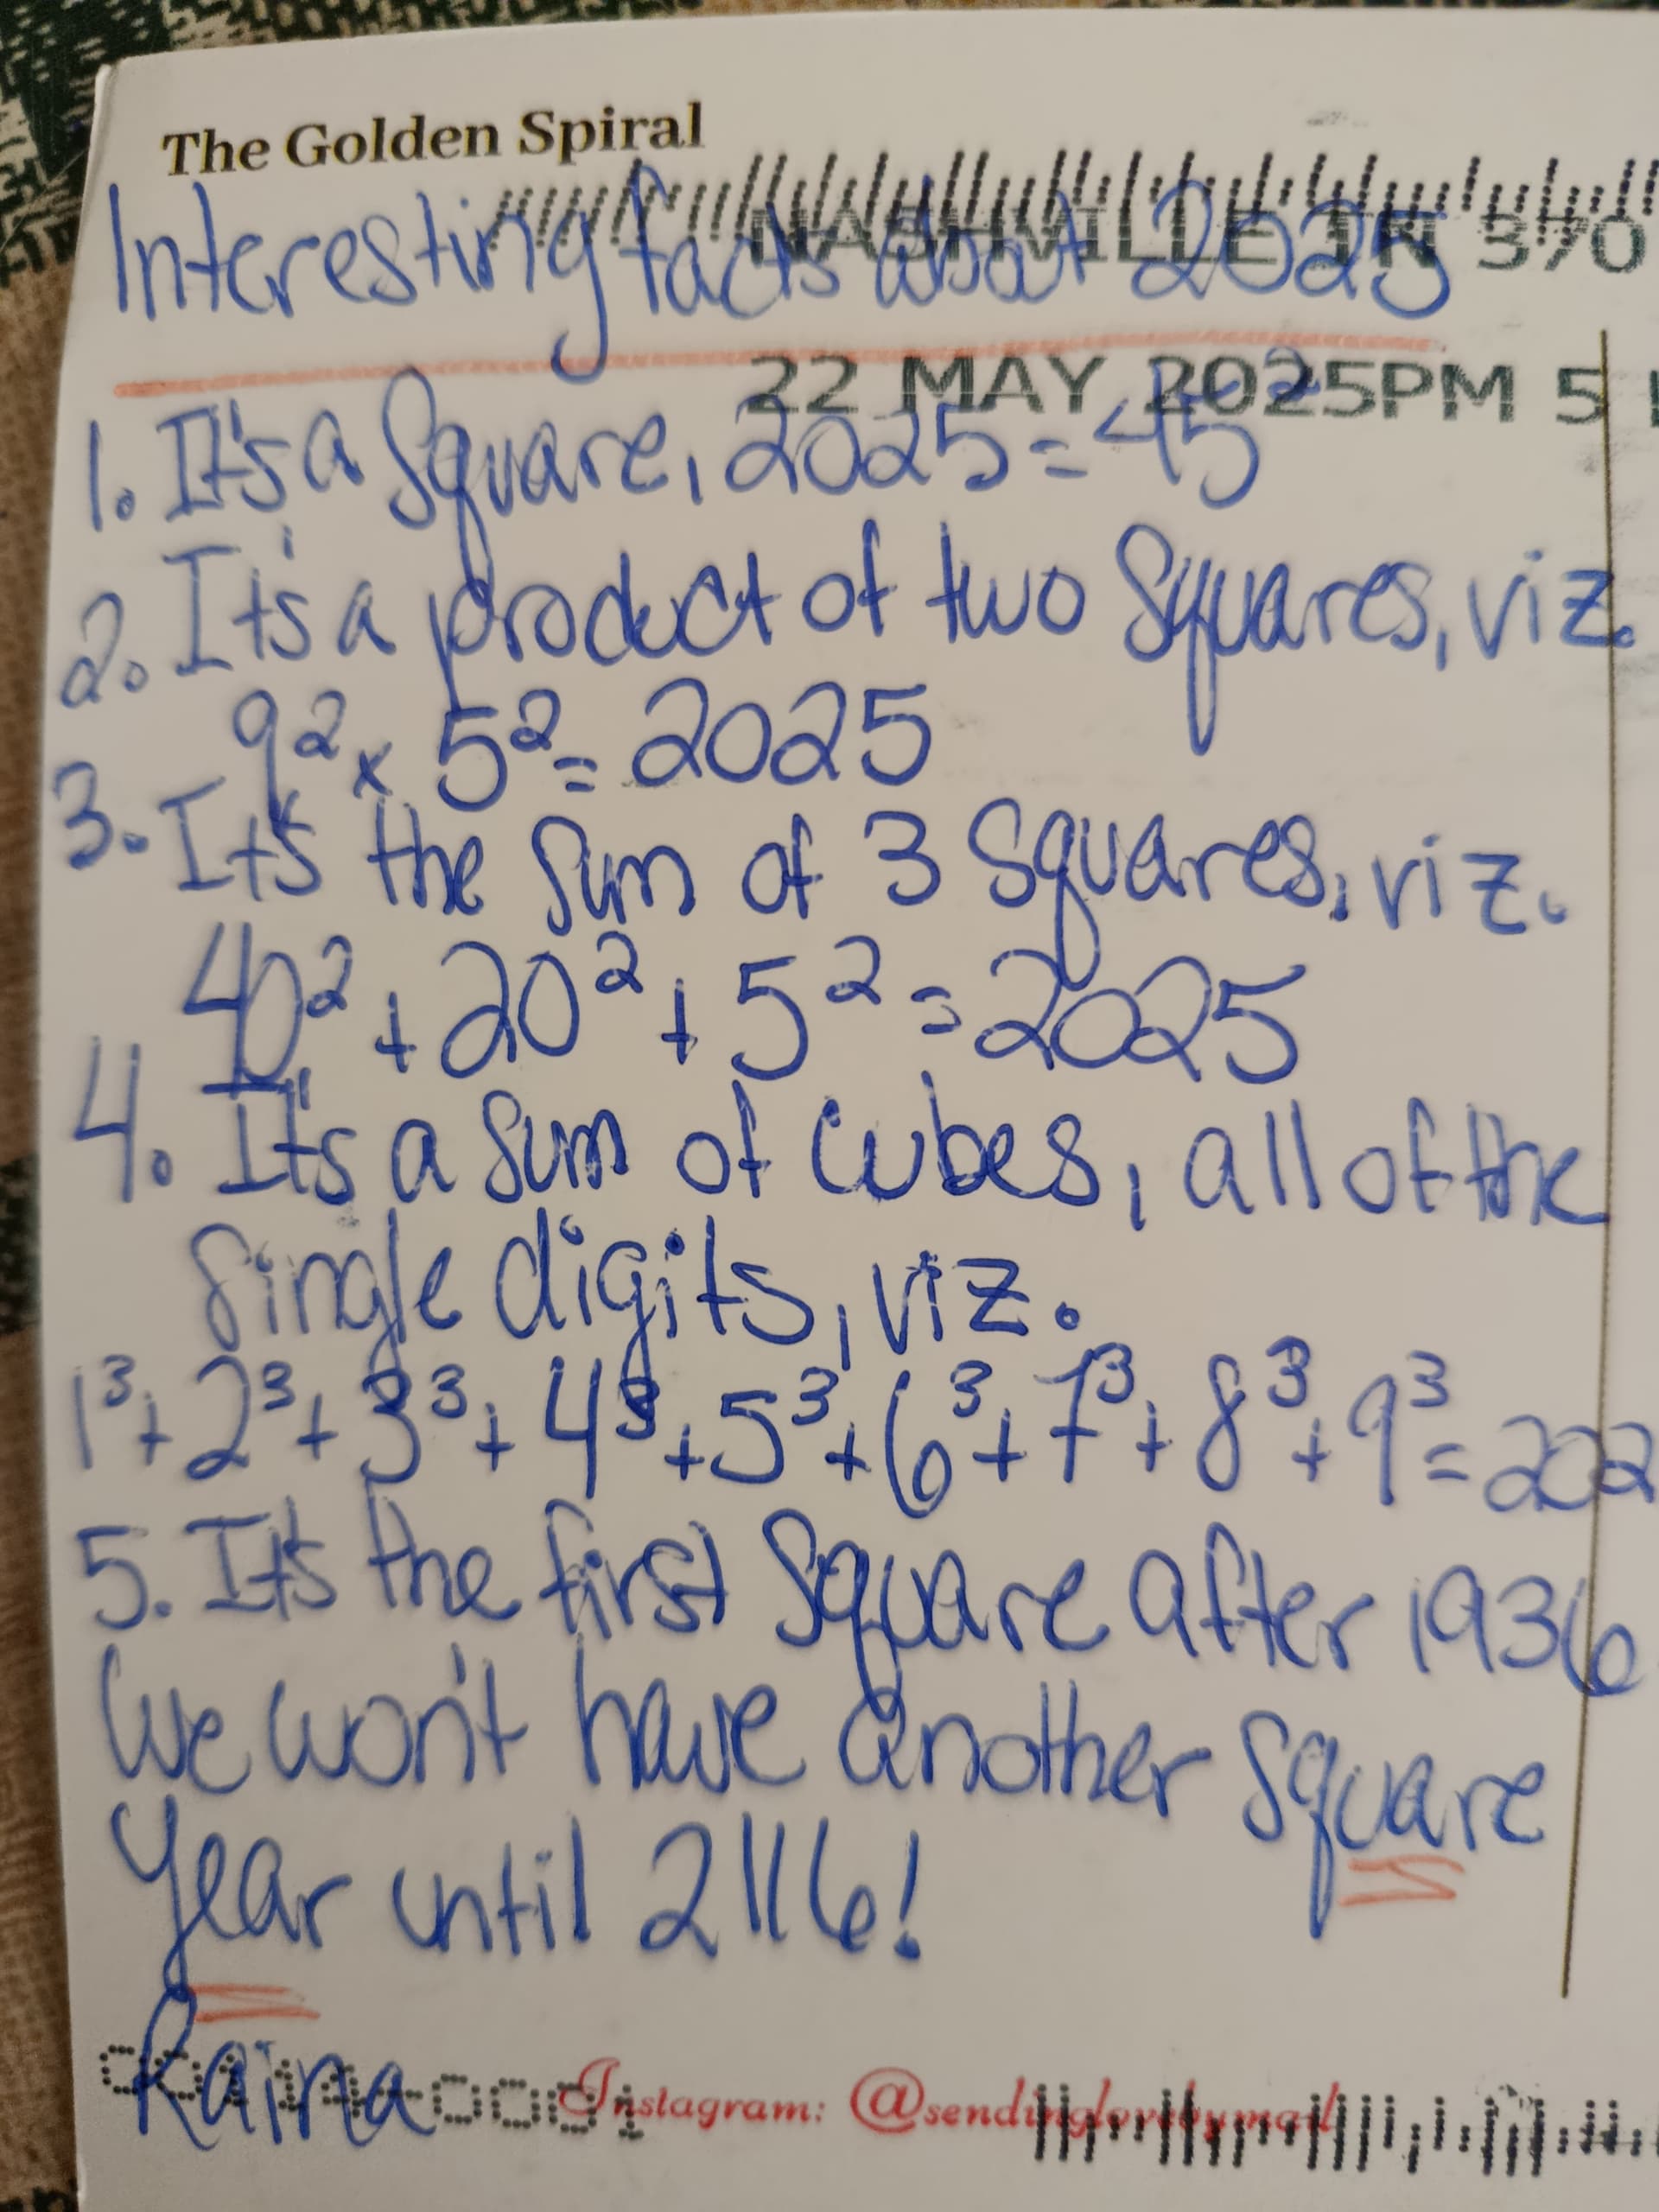 The Golden Spiral
NASHVILLE TN 370
Interesting facts about 2025
22 MAY 2025PM 5
1. It's a Square, 2025 = 45²
2. It's a product of two Squares, viz.
9² x 5² = 2025
3. It's the Sum of 3 Squares, viz.
40² + 20² + 5² = 2025
4. It's a Sum of cubes, all of the
Single digits, viz.
1³ + 2³ + 3³ + 4³ + 5³ + 6³ + 7³ + 8³ + 9³ = 202
5. It's the first Square after 1936
We won't have another Square
Year until 2116!
Raina
Instagram: @sendinglovebymail